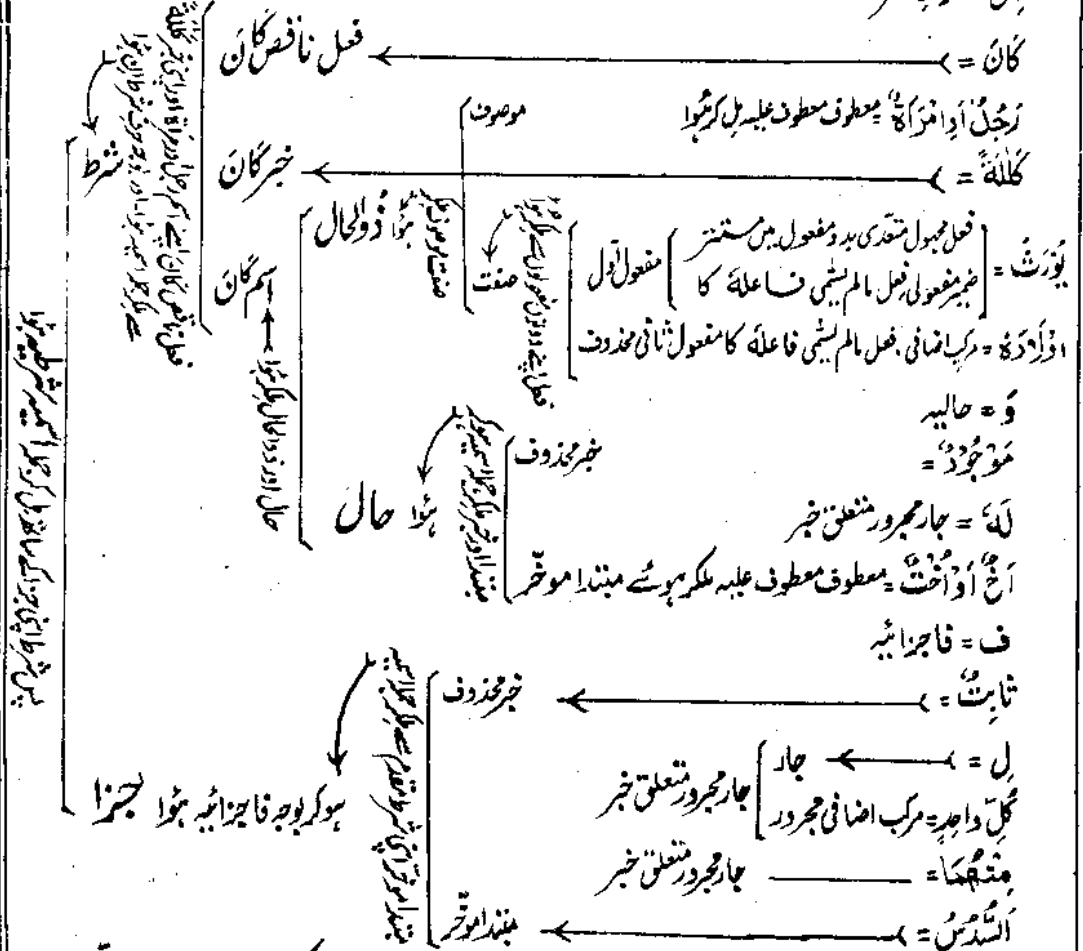 كَانَ = فعل ناقص كَانَ
رَجُلٌ أَوِ امْرَأَةٌ = معطوف معطوف علیہ مل کر ہُوا موصوف
كَلٰلَةً = خبر كَانَ
يُوْرَثُ = فعل مجہول متعدّی بدو مفعول میں مستتر
ضمیر مفعولی فعل مالم یسمّی فاعلہٗ کا مفعول اول
اَوْلَادَهٗ = مرکب اضافی فعل مالم یسمّی فاعلہٗ کا مفعول ثانی محذوف
فعل اپنے دونوں مفعولوں سے ملکر ہوا
صفت
صفت موصوف ملکر
ہُوا ذُوالحال
وَ = حالیہ
مَوْجُوْدٌ = خبر محذوف
لَهٗ = جار مجرور متعلق خبر
اَخٌ اَوْ اُخْتٌ = معطوف معطوف علیہ ملکر ہوئے مبتدا موخّر
مبتدا اور خبر ملکر جملہ اسمیہ ہوکر
ہُوا حال
حال اور ذوالحال ملکر ہُوا
اسم كَانَ
فعل ناقص كَانَ اپنے اسم
شرط
ف = فا جزائیہ
ثَابِتٌ = خبر محذوف
لِ = جار
كُلِّ وَاحِدٍ = مرکب اضافی مجرور
جار مجرور متعلق خبر
مِنْهُمَا = جار مجرور متعلق خبر
اَلسُّدُسُ = مبتدا موخّر
مبتدا موخر اپنی خبر مقدم سے ملکر جملہ اسمیہ
ہوکر بوجہ فا جزائیہ ہُوا جزا
پس شرط اپنی جزا کے ساتھ مل کر جملہ اسمیہ شرطیہ ہُوا